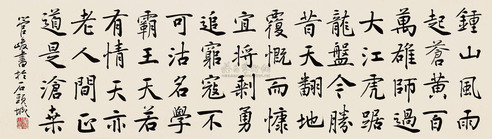 鍾山風雨
起蒼黃百
萬雄師過
大江虎踞
龍盤今勝
昔天翻地
覆慨而慷
宜將剩勇
追窮寇不
可沽名學
霸王天若
有情天亦
老人間正
道是滄桑
管峻書於石頭城